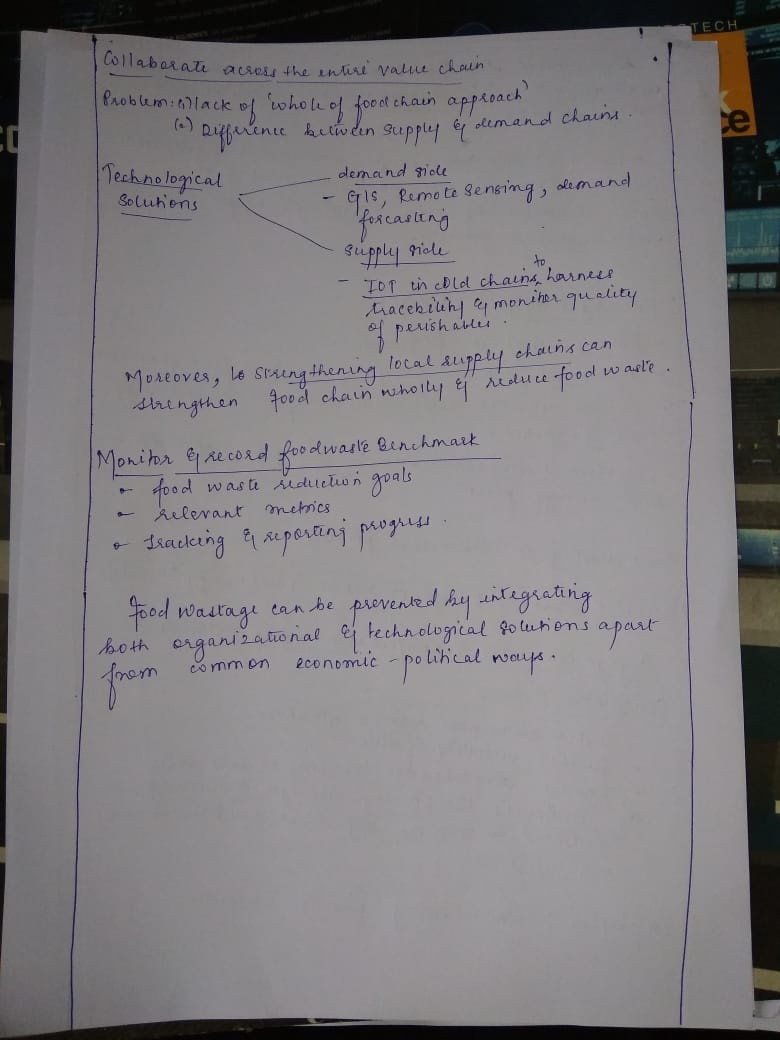 TECH
ce
Collaborate across the entire value chain
Problem: (1) lack of 'whole of food chain approach'
(2) Difference between supply & demand chains.
Technological
Solutions
demand side
- GIS, Remote Sensing, demand
forcasting
Supply side
- IOT in cold chains to harness
tracebility & moniter quality
of perishables.
Moreover, strengthening local supply chains can
strengthen food chain wholly & reduce food waste.
Monitor & record foodwaste Benchmark
- food waste reduction goals
- relevant metrics
- tracking & reporting progress.
Food wastage can be prevented by integrating
both organizational & technological solutions apart
from common economic-political ways.